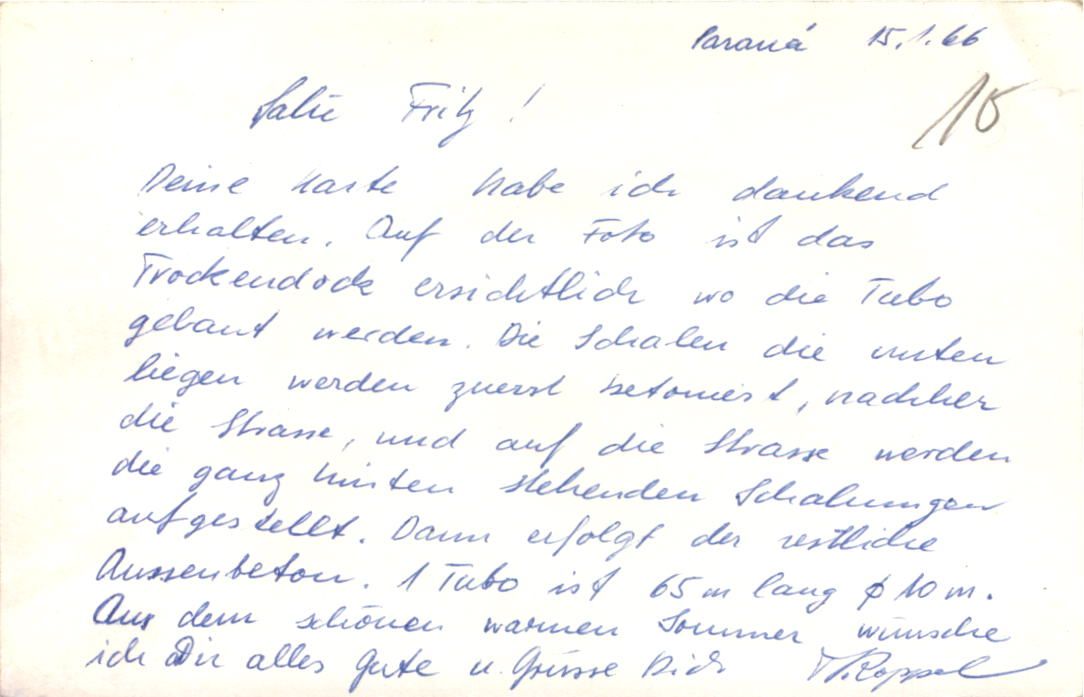 Paraná 15.1.66
15
Salü Fritz!
Deine Karte habe ich dankend
erhalten. Auf der Foto ist das
Trockendock ersichtlich wo die Tubo
gebaut werden. Die Schalen die unten
liegen werden zuerst betoniert, nachher
die Strasse, und auf die Strasse werden
die ganz hinten stehenden Schalungen
aufgestellt. Dann erfolgt der restliche
Aussenbeton. 1 Tubo ist 65 m lang ϕ 10 m.
Aus dem schönen warmen Sommer wünsche
ich Dir alles Gute u. Grüsse Dich